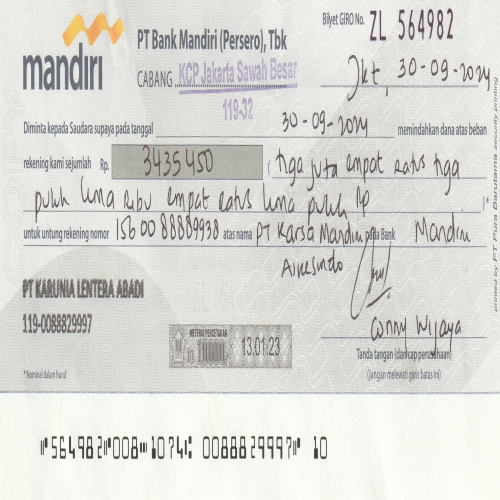 mandiri
PT Bank Mandiri (Persero), Tbk
Bilyet GIRO No. ZL 564982
CABANG KCP Jakarta Sawah Besar
119-32
Jkt, 30-09-2024
Diminta kepada Saudara supaya pada tanggal 30-09-2024 memindahkan dana atas beban
rekening kami sejumlah Rp. 3435450 ( tiga juta empat ratus tiga
puluh lima ribu empat ratus lima puluh Rp )*
untuk untung rekening nomor 1560088889938 atas nama PT Karsa Mandiri pada Bank Mandiri
Airesindo
PT KARUNIA LENTERA ABADI
119-0088829997
METERAI PERCETAKAN
Rp. 10000
13.01.23
Conny Wijaya
Tanda tangan (dan cap perusahaan)
(jangan melewati garis batas ini)
* Nominal dalam huruf
printed by PT Pura Barutama security printing
⑈564982⑈008⑉1074⑆ 0088829997⑈ 10